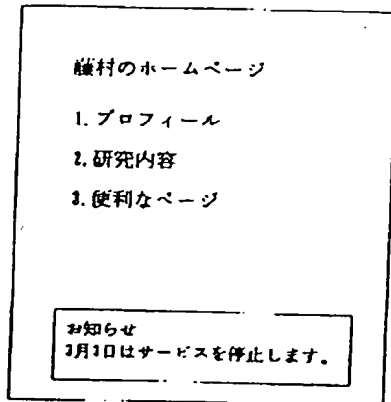 藤村のホームページ
1. プロフィール
2. 研究内容
3. 便利なページ
お知らせ
3月3日はサービスを停止します。